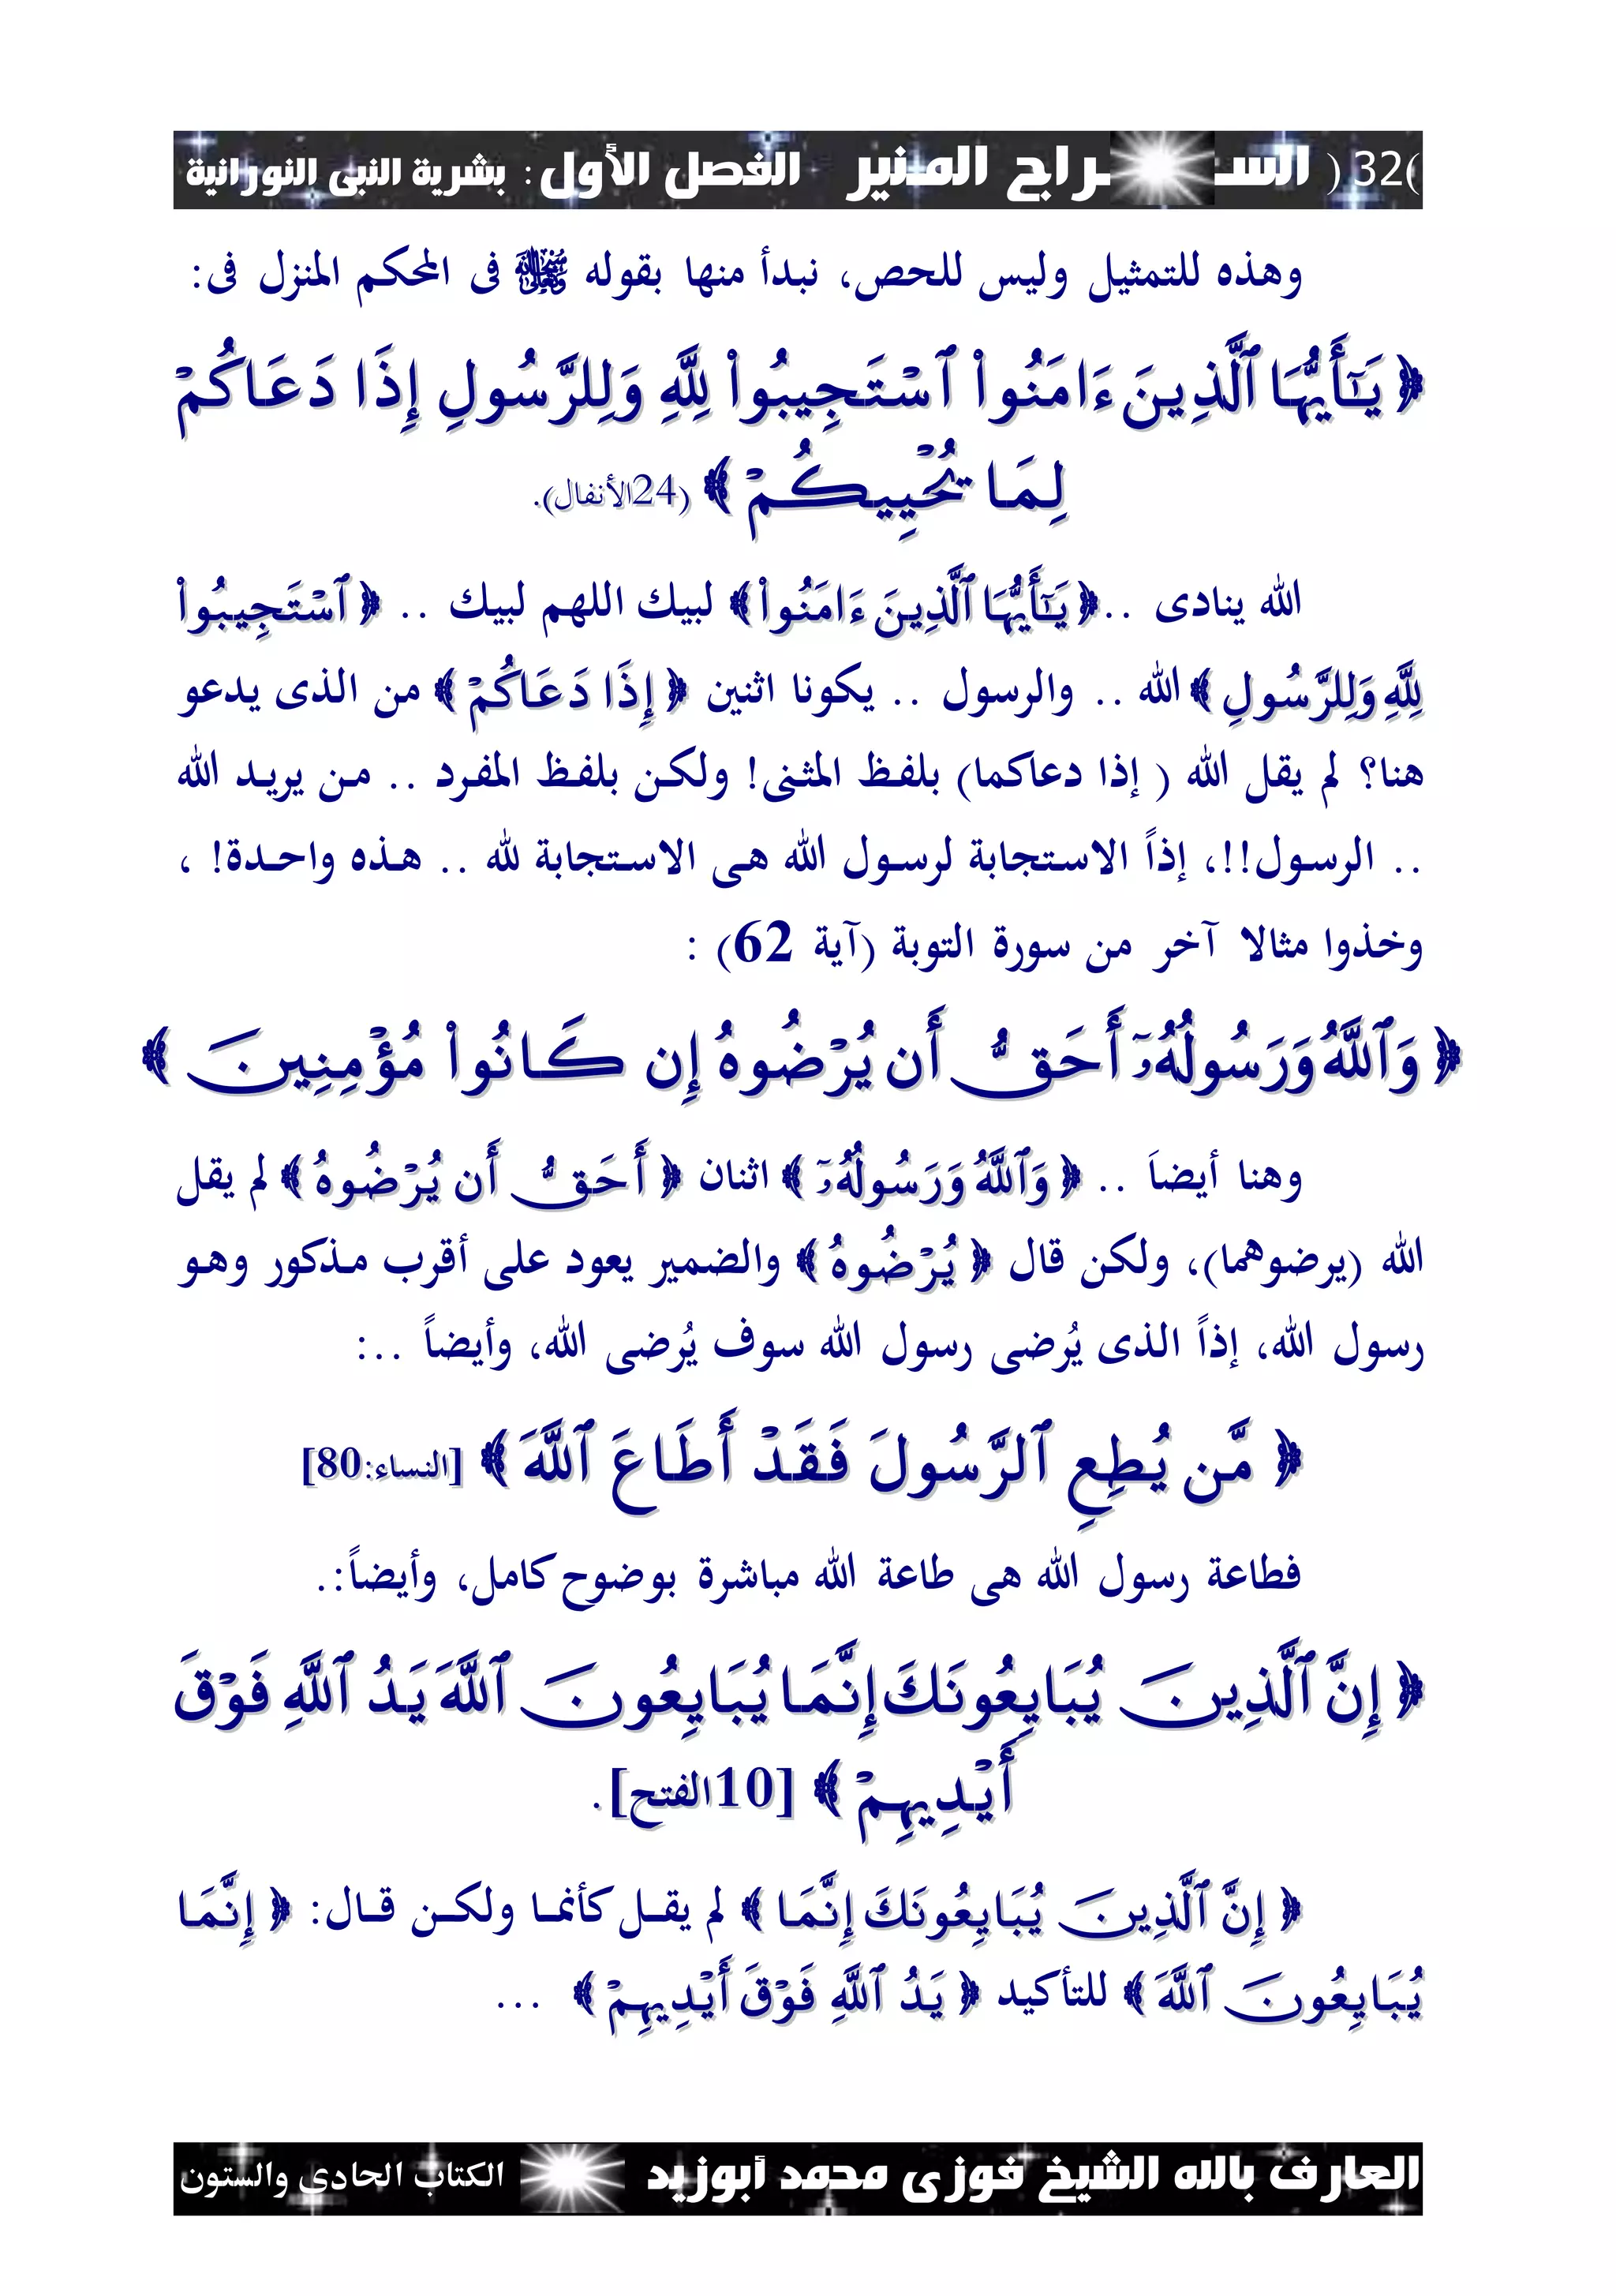 (32) الســـراج المـنير الفصل الأول: بشرية النبى النورانية
وهذه للتمثيل وليس للحصر، نبدأ منها بقوله ﷻ فى المحكم المنزل فى:
﴿ يَـٰٓأَيُّهَا ٱلَّذِينَ ءَامَنُوا۟ ٱسْتَجِيبُوا۟ لِلَّهِ وَلِلرَّسُولِ إِذَا دَعَاكُمْ
لِمَا تُحْيِيكُمْ ﴾ (24الأنفال).
الله ينادى .. ﴿ يَـٰٓأَيُّهَا ٱلَّذِينَ ءَامَنُوا۟ ﴾ لبيك اللهم لبيك .. ﴿ ٱسْتَجِيبُوا۟
لِلَّهِ وَلِلرَّسُولِ ﴾ الله .. والرسول .. يكونا اثنين ﴿ إِذَا دَعَاكُمْ ﴾ من الذى يدعو
هنا؟ لم يقل الله ( إذا دعاكما) بلفظ المثنى! ولكن بلفظ المفرد .. من يريد الله
.. الرسول!!، إذاً الاستجابة لرسول الله هى الاستجابة لله .. هذه واحدة! ،
وخذوا مثالا آخر من سورة التوبة (آية 62) :
﴿ وَٱللَّهُ وَرَسُولُهُۥٓ أَحَقُّ أَن يُرْضُوهُ إِن كَانُوا۟ مُؤْمِنِينَ ﴾
وهنا أيضاَ .. ﴿ وَٱللَّهُ وَرَسُولُهُۥٓ ﴾ اثنان ﴿ أَحَقُّ أَن يُرْضُوهُ ﴾ لم يقل
الله (يرضوهما)، ولكن قال ﴿ يُرْضُوهُ ﴾ والضمير يعود على أقرب مذكور وهو
رسول الله، إذاً الذى يُرضى رسول الله سوف يُرضى الله، وأيضاً ..:
﴿ مَّن يُطِعِ ٱلرَّسُولَ فَقَدْ أَطَاعَ ٱللَّهَ ﴾ [النساء:80]
فطاعة رسول الله هى طاعة الله مباشرة بوضوح كامل، وأيضاً:.
﴿ إِنَّ ٱلَّذِينَ يُبَايِعُونَكَ إِنَّمَا يُبَايِعُونَ ٱللَّهَ يَدُ ٱللَّهِ فَوْقَ
أَيْدِيهِمْ ﴾ [10الفتح].
﴿ إِنَّ ٱلَّذِينَ يُبَايِعُونَكَ إِنَّمَا ﴾ لم يقل كأنما ولكن قال: ﴿ إِنَّمَا
يُبَايِعُونَ ٱللَّهَ ﴾ للتأكيد ﴿ يَدُ ٱللَّهِ فَوْقَ أَيْدِيهِمْ ﴾ ...
العارف بالله الشيخ فوزى محمد أبوزيد الكتاب الحادى والستون